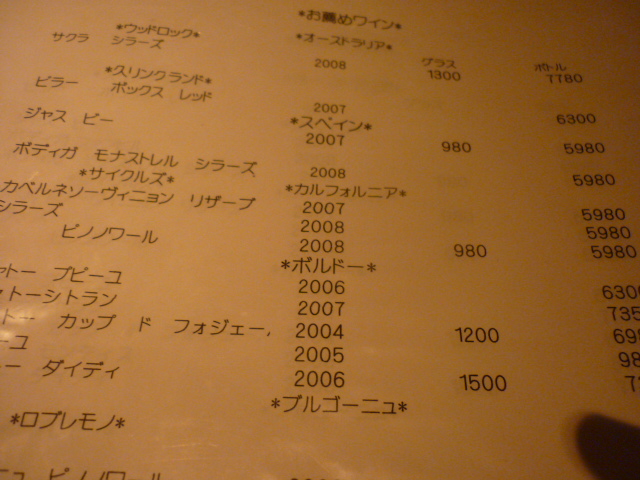 *お薦めワイン*
*ウッドロック* *オーストラリア*
サクラ シラーズ 2008 グラス 1300 ボトル 7780
*クリンクランド*
ピラー ボックス レッド 2007 6300
*スペイン*
ジャス ピー 2007 980 5980
ボディガ モナストレル シラーズ 2008 5980
*サイクルズ* *カルフォルニア*
カベルネソーヴィニョン リザーブ 2007 5980
シラーズ 2008 5980
ピノノワール 2008 980 5980
*ボルドー*
トー プピーユ 2006 6300
トーシトラン 2007
トー カップ ド フォジェー 2004 1200
ーユ 2005
ー ダイディ 2006 1500
*ブルゴーニュ*
*ロブレモノ*
ピノノワール